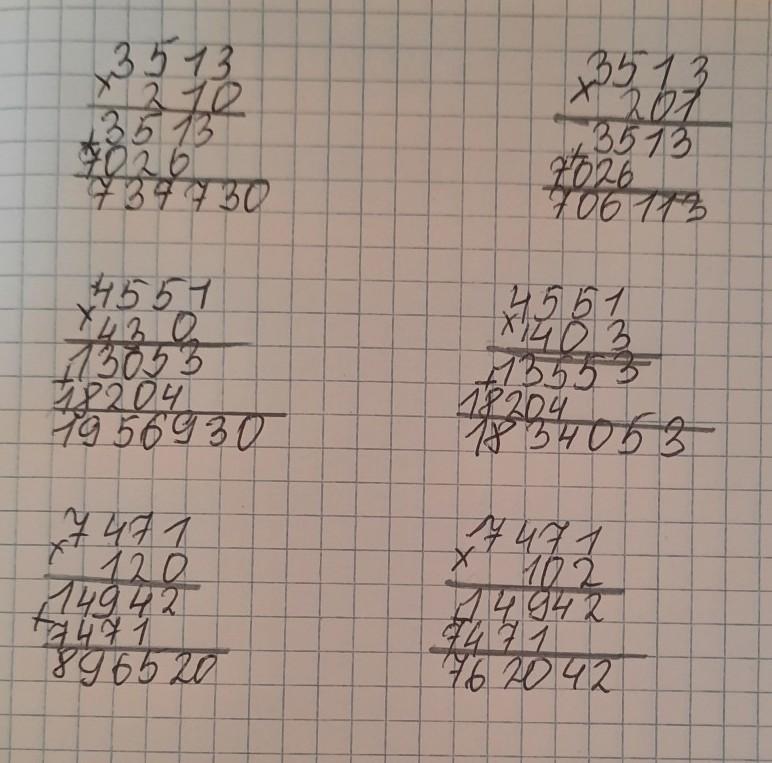 3513
× 210
3513
+
7026
737730
3513
× 201
3513
+
7026
706113
4551
× 430
13653
+
18204
1956930
4551
× 403
13553
+
18204
1834053
7471
× 120
14942
+
7471
896520
7471
× 102
14942
+
7471
762042